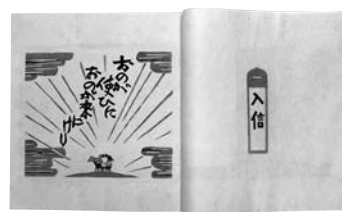 一
入信
おのが
使ひに
おのが来
にけり